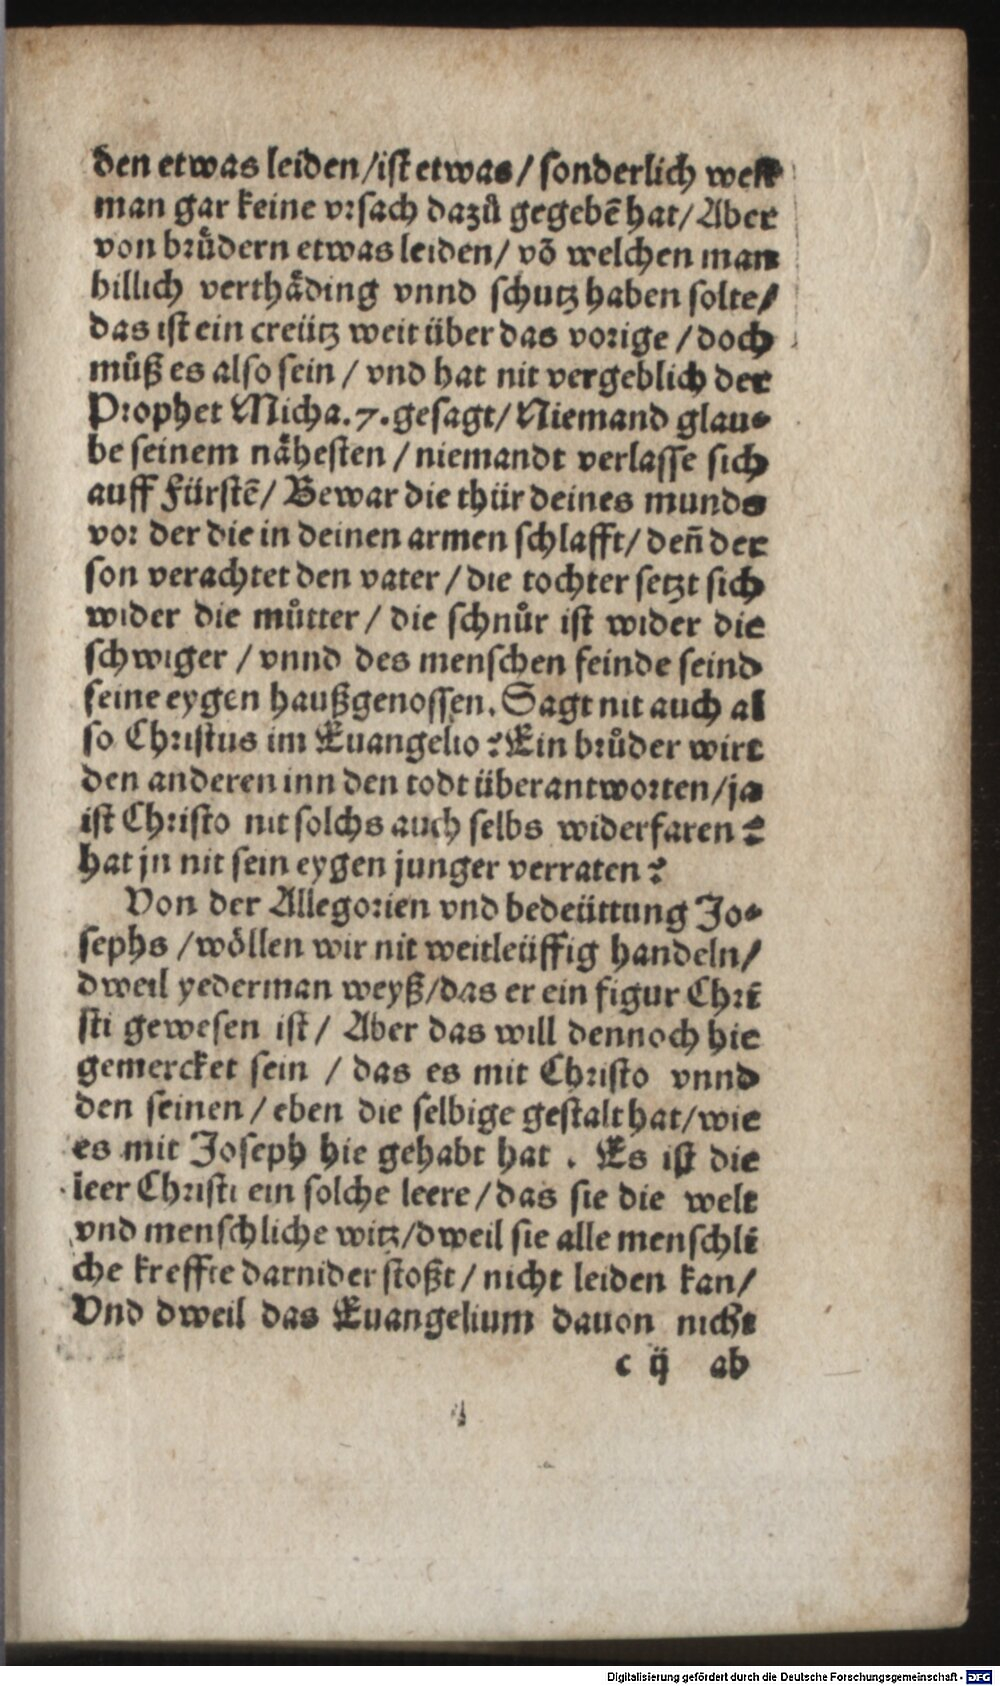 den etwas leiden/ist etwas/ sonderlich weñ
man gar keine vrsach dazů gegebē hat/ Aber
von brůdern etwas leiden/ vō welchen man
billich verthäding vnnd schutz haben solte/
das ist ein creütz weit über das vorige / doch
můß es also sein / vnd hat nit vergeblich der
Prophet Micha.7.gesagt/ Niemand glau-
be seinem nähesten / niemandt verlasse sich
auff Fürstē/ Bewar die thür deines munds
vor der die in deinen armen schlafft/ deñ der
son verachtet den vater / die tochter setzt sich
wider die můtter / die schnůr ist wider die
schwiger / vnnd des menschen feinde seind
seine eygen haußgenossen. Sagt nit auch al
so Christus im Euangelio? Ein brůder wirt
den anderen inn den todt überantworten/ja
ist Christo nit solchs auch selbs widerfaren?
hat jn nit sein eygen junger verraten?
Von der Allegorien vnd bedeüttung Jo-
sephs /wöllen wir nit weitleüffig handeln/
dweil yederman weyß/das er ein figur Chri
sti gewesen ist/ Aber das will dennoch hie
gemercket sein / das es mit Christo vnnd
den seinen / eben die selbige gestalt hat/wie
es mit Joseph hie gehabt hat . Es ist die
leer Christi ein solche leere/das sie die welt
vnd menschliche witz/dweil sie alle menschli
che kreffte darnider stoßt / nicht leiden kan/
Vnd dweil das Euangelium dauon nicht
c ij ab
Digitalisierung gefördert durch die Deutsche Forschungsgemeinschaft - DFG